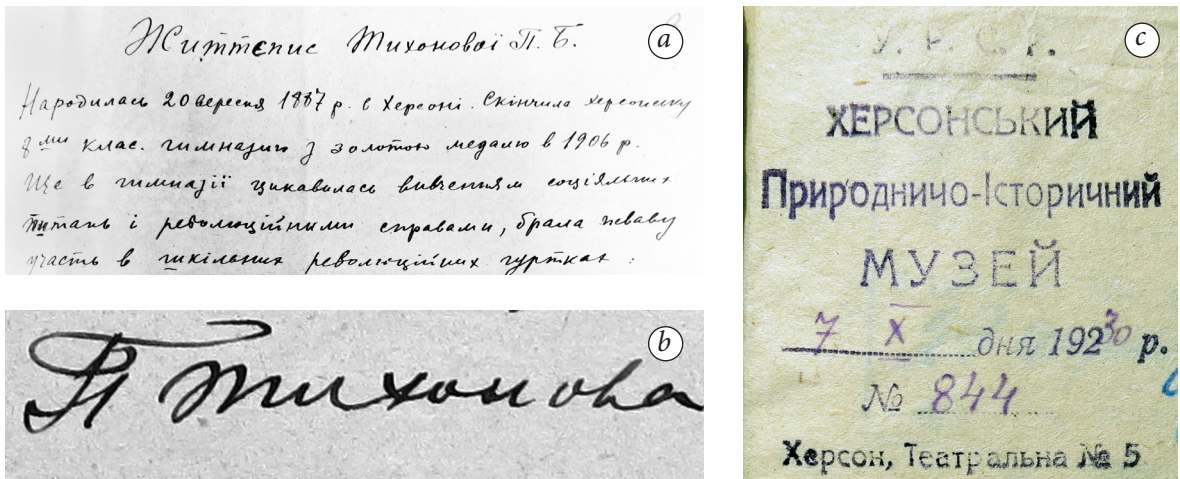 Життєпис Тихонової П. Б.
a
Народилась 20 вересня 1887 р. в Херсоні. Скінчила херсонську
8ми клас. гимназию з золотою медалю в 1906 р.
Ще в гимназії цикавилась вивченням соціяльних
питань і революційними справами, брала певаву
участь в шкільних революційних гуртках :
b
П Тихонова
c
У. Р. С. Р.
ХЕРСОНСЬКИЙ
Природничо-Історичний
МУЗЕЙ
7 X дня 19230 р.
№ 844
Херсон, Театральна № 5